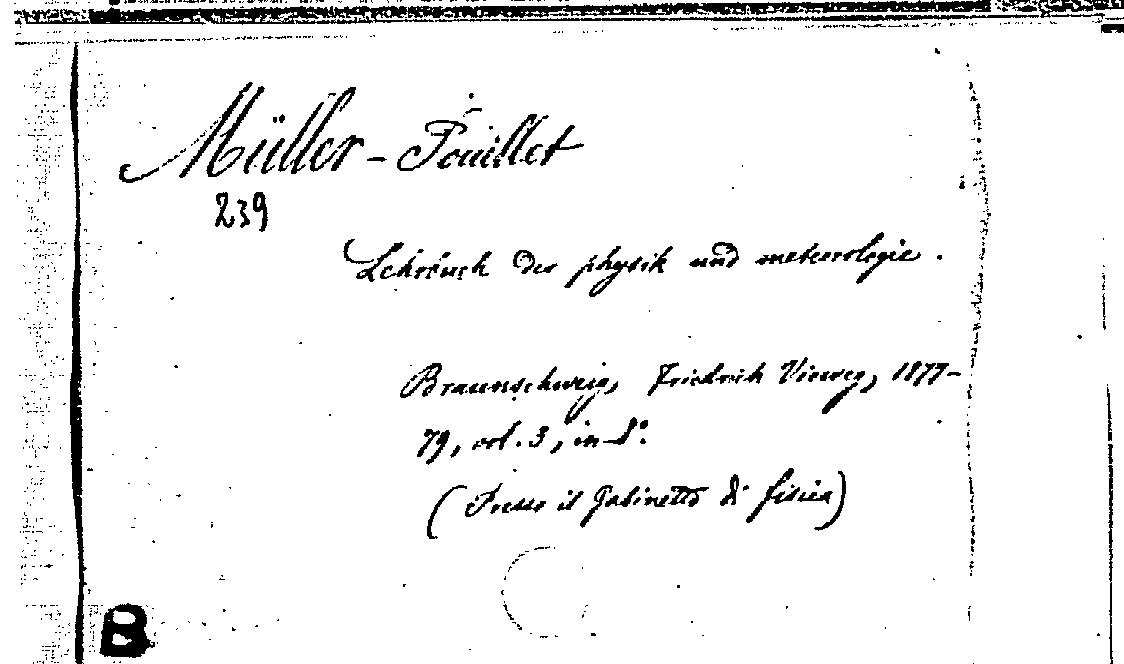 Müller - Pouillet
239
Lehrbuch der physik und meteorologie.
Braunschweig, Friedrich Vieweg, 1877-
79, vol. 3, in-8°.
(Presso il Gabinetto di fisica)
B